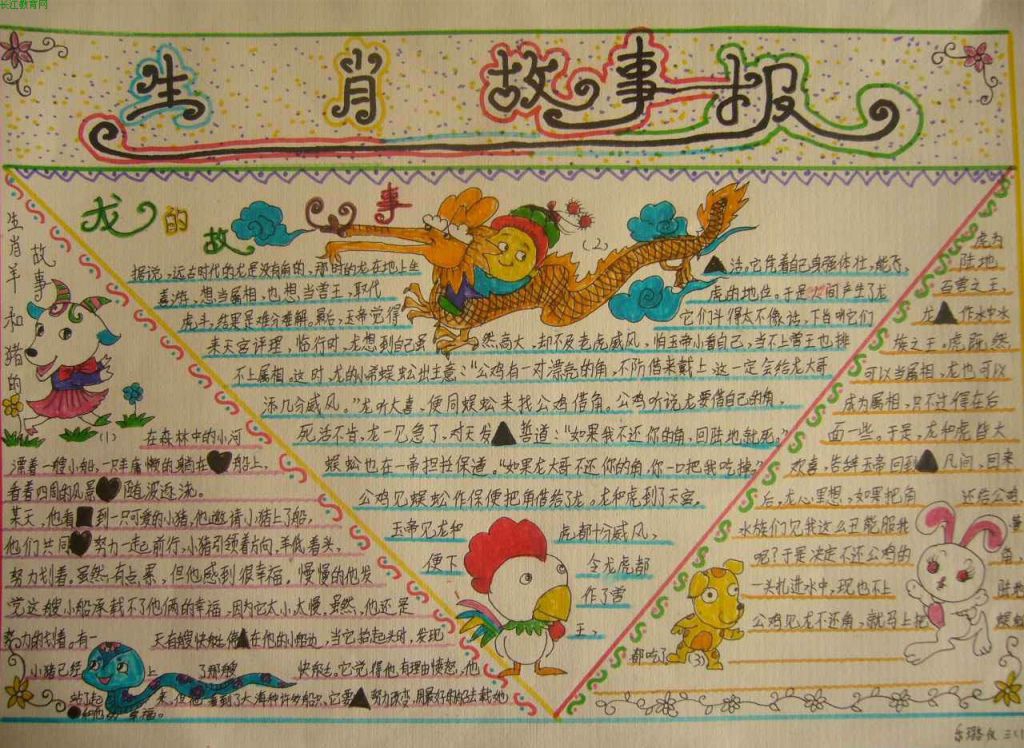 长江教育网
生肖故事报
生肖羊和猪的故事
(1)
在森林中的小河
漂着一艘小船，一只羊慵懒的躺在船上，
看着四周的风景随波逐流。
某天，他看到一只可爱的小猪，他邀请小猪上了船，
他们共同努力一起前行，小猪引领着方向，羊低着头，
努力划着，虽然有点累，但他感到很幸福，慢慢的他发
觉这艘小船承载不了他俩的幸福，因为它太小太慢，虽然，他还是
努力的划着。有一天有艘快艇停在他的小船边，当它抬起头时，发现
小猪已经上了那艘快艇，它觉得他有理由愤怒，他
站了起来，但他看到了大海种许多船只，它要努力改变，用最好的船去载她
和他的幸福。
龙的故事
(2)
据说，远古时代的龙是没有角的，那时的龙在地上生活，它凭着自己身强体壮，能飞，
喜游，想当属相，也想当兽王，取代虎的地位。于是人间产生了龙
虎斗，结果是难分难解。最后，玉帝觉得它们斗得太不像话，下旨叫它们
来天宫评理，临行时，龙想到自己虽然高大，却不及老虎威风，怕玉帝小看自己，当不上兽王也排
不上属相。这时，龙的小弟蜈蚣出主意：“公鸡有一对漂亮的角，不防借来戴上，这一定会给龙大哥
添几分威风。”龙听大喜，便同蜈蚣来找公鸡借角。公鸡听说龙要借自己的角，
死活不肯，龙一见急了，对天发誓道：“如果我不还你的角，回陆地就死。”
蜈蚣也在一帝担任保道：“如果龙大哥不还你的角，你一口把我吃掉。”
公鸡见蜈蚣作保便把角借给了龙。龙和虎到了天宫，
玉帝见龙和虎都十分威风，
便下令龙虎都
作了兽
王，
虎为
陆地
百兽之王，
龙作水中水
族之王。虎既然
可以当属相，龙也可以
成为属相，只不过信在后
面一些。于是，龙和虎皆大
欢喜，告别玉帝回到凡间，回来
后，龙心里想，如果把角还给公鸡
水族们见我这么丑能服我
呢？于是决定不还公鸡的角，
一头扎进水中，现也不上陆地
公鸡见龙不还角，就马上把蜈蚣
都吃了
(3)